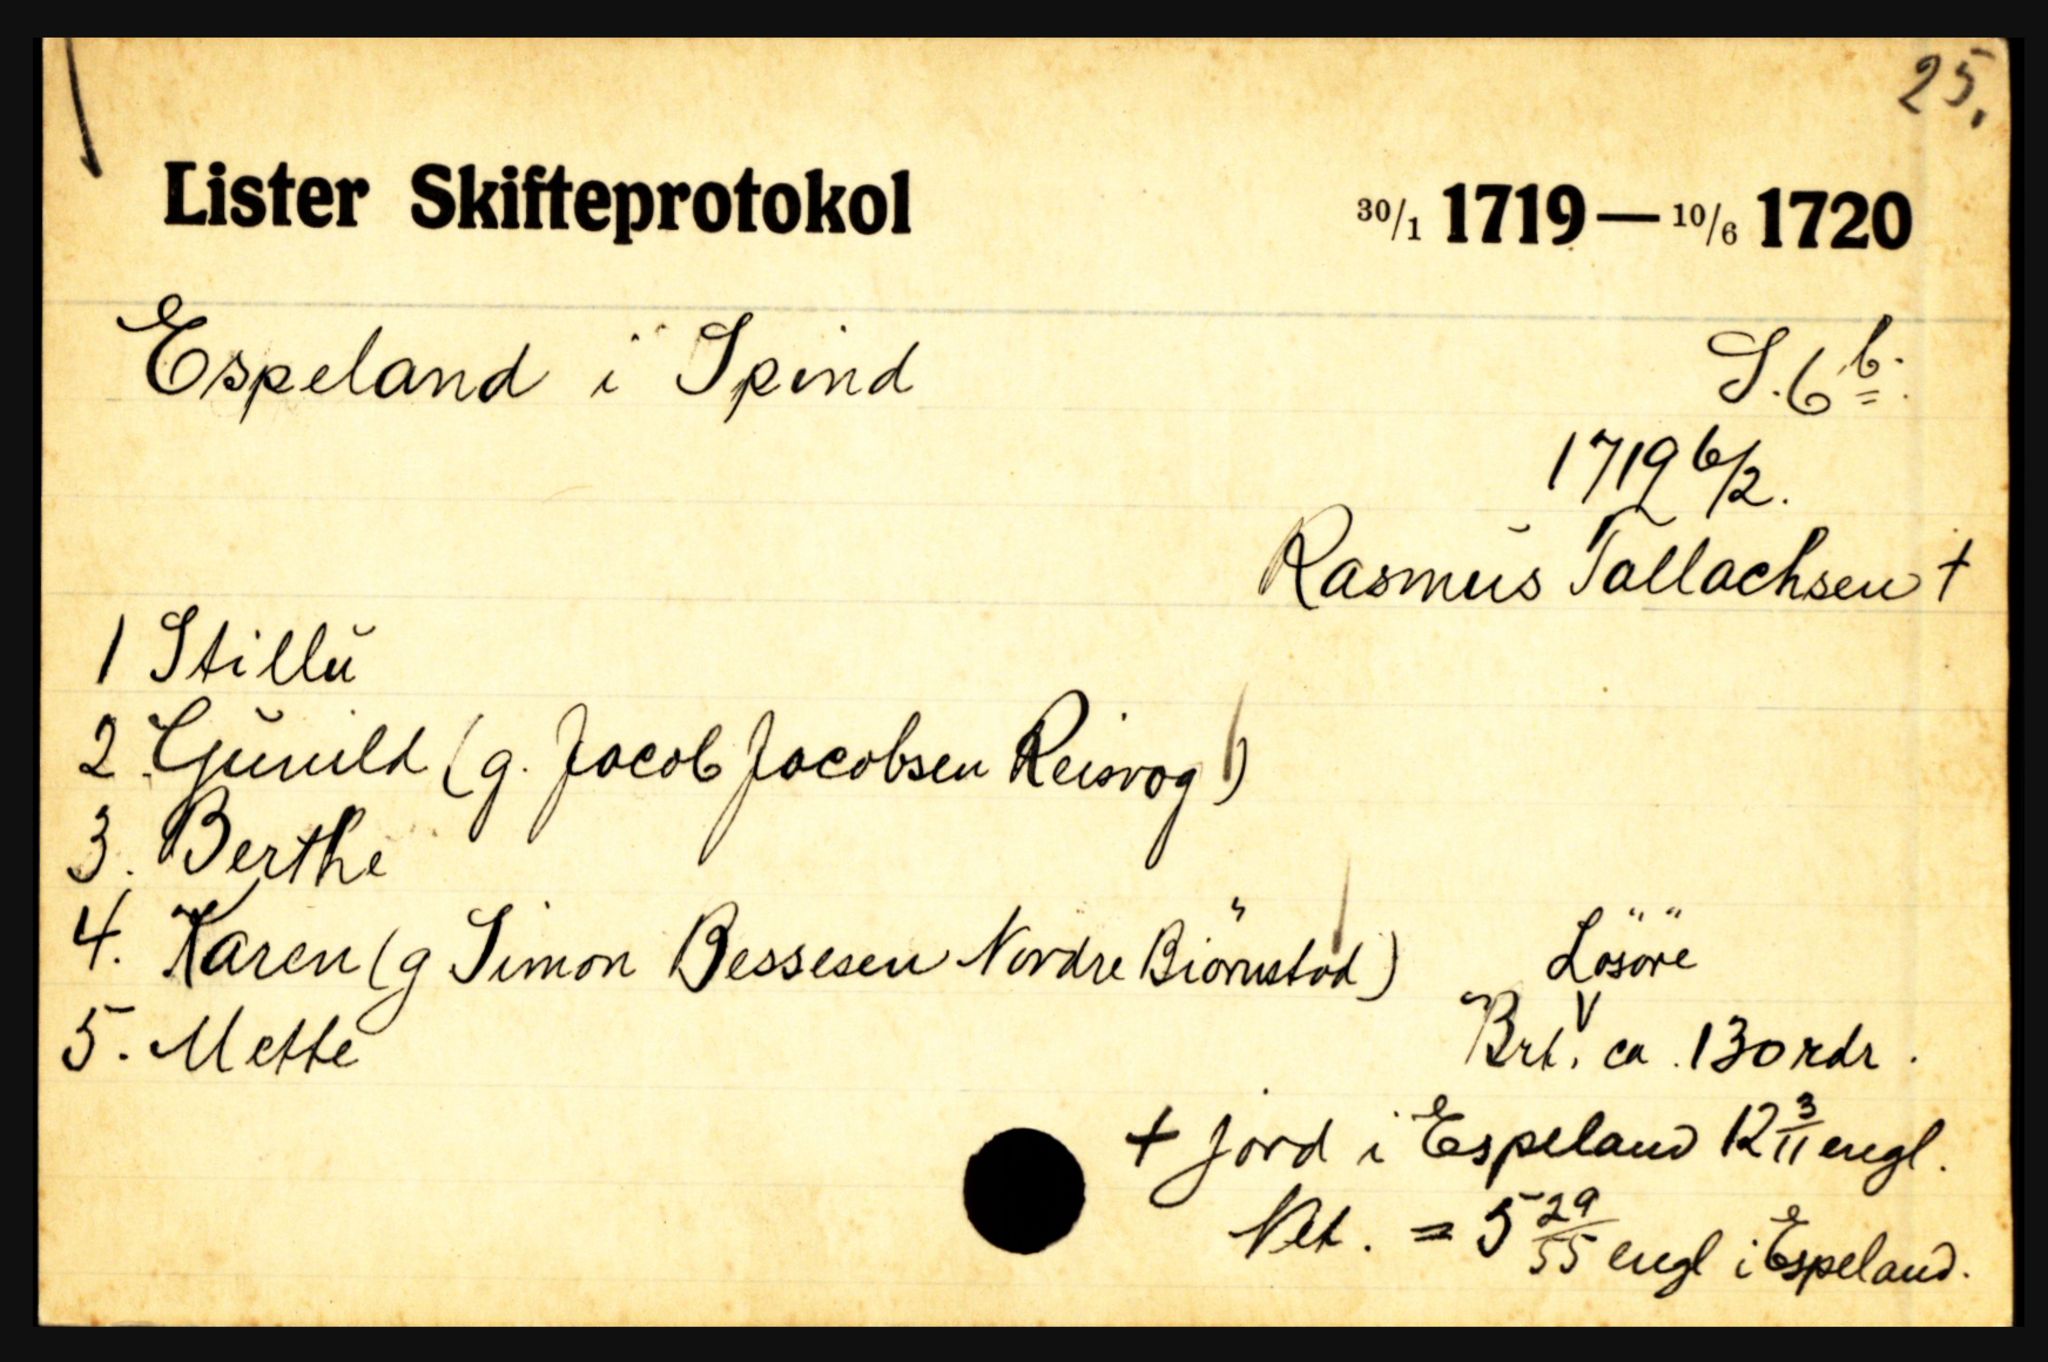 25.
Lister Skifteprotokol 30/1 1719 — 10/6 1720
Espeland i Spind S. 6 b.
1719 6/2.
Rasmus Tallachsen +
1 Stillu
2 Gunild (g. Jacob Jacobsen Reisvog)
3. Berthe
4. Karen (g Simon Bessesen Nordre Biörnstad)
5. Mette
Lösöre
Brt. ca. 130 rdr.
+ jord i Espeland 12 3/11 engl.
Net. = 5 29/55 engl i Espeland.